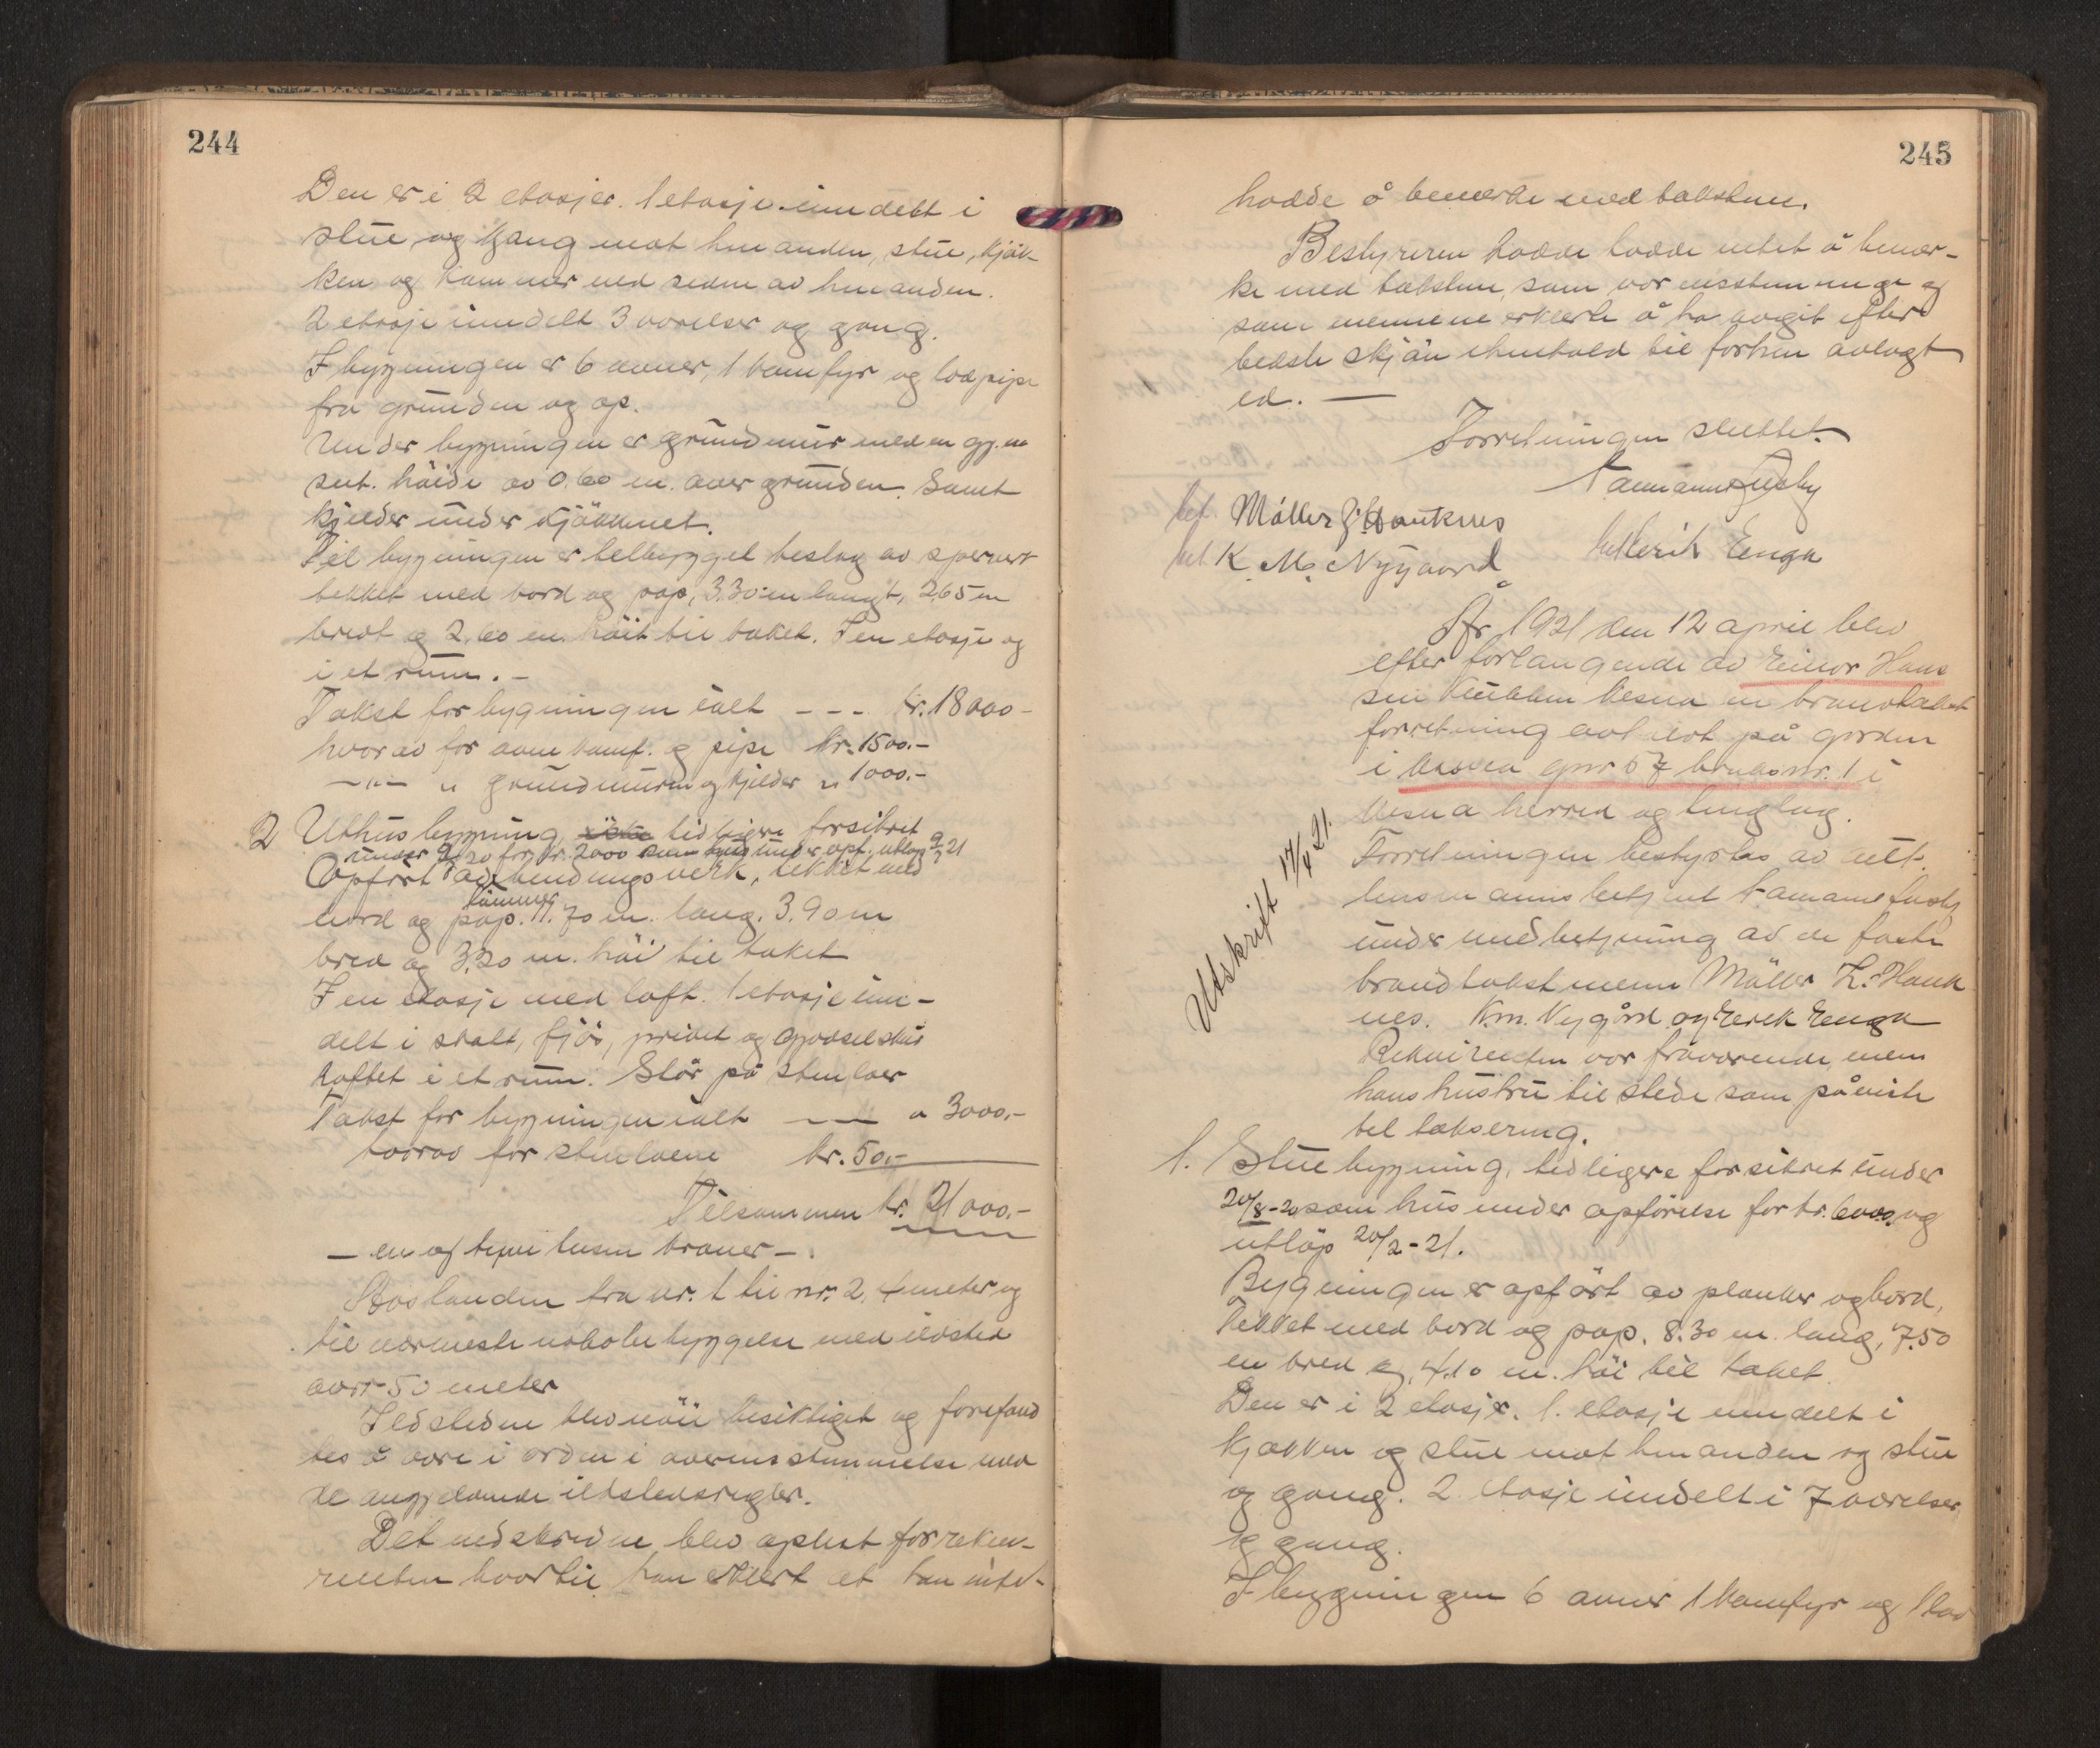 244
Den er i 2 etasjer. 1 etasje inndelt i
stue og gang mot hinanden, stue, kjök-
ken og kammer ved siden av hinanden.
2 etasje inndelt 3 værelser og gang.
I bygningen er 6 ovner, 1 kamfyr og lodpipe
fra grunden og op.
Under bygningen er grundmur med en gj.en
snt. höide av 0.60 m. over grunden. Samt
kjelder under kjökkenet.
Til bygningen er tilbygget beslag av sperverk
tekket med bord og pap, 3.30 m langt, 2.65 m
bredt og 2.60 m. höit til taket. I en etasje og
i et rum. -
Takst for bygningen ialt - - - kr. 18000-
hvorav for ovne kamf. og pipe kr. 1500.-
-"- " grundmuren og kjelder " 1000.-
2 Uthusbygning tidligere forsikret
under 9/9 20 for kr. 2000 som hus under opf. utlöp 9/3 21
Opfört av bendingsverk, tekket med
tömmer
bord og pap. 11.70 m. lang. 3.90 m
bred og 3.30 m. höi til taket
I en etasje med loft. 1 etasje inn-
delt i stalt, fjös, privet og gjødselskur
Loftet i et rum. Står på stenlaer
Takst for bygningen ialt — " 3000.-
hvorav for stenlaene kr. 50.-
Tilsammen kr. 21000.-
- en og tyve tusen kroner -.
Avstanden fra nr. 1 til nr. 2, 4 meter og
til nærmeste nabobebyggelse med ildsted
over 50 meter
Ildstedene blev nöie besiktiget og forefand
tes å være i orden i overensstemmelse med
de angjeldende ildstedsregler.
Det nedskrevne blev oplest for rekvi-
renten hvortil han erklert at han intet
245
hadde å bemerke med taksten.
Bestyreren hadde hadde intet å bemær-
ke med taksten, som var enstemmige og
som mennene erklerte å ha avgit efter
bedste skjön i henhold til forhen avlagt
ed. —
Forretningen sluttet.
Møller Z. Hauknes
K. M. Nygaard Erik Enga
År 1921 den 12 april blev
efter forlangende av Einar Han
sen Klubben Nesna en brandtakst
forretning avholdt på gården
i Nesna gnr 57 bruksnr. 1 i
Nesna herred og tinglag.
Utskrift 17/4 21.
Forretningen bestyrtes av
lensmannsbetjent
under medbetjening av de faste
brandtakstmenn Møller Z. Hauk
nes. K.m. Nygård og Erik Enga
Rekvirenten var fraværende, men
hans hustru tilstede som påviste
til taksering.
1. Stuebygning, tidligere forsikret under
20/8-20 som hus under opförelse for kr. 6000, og
utlöp 20/2-21.
Bygningen er opfört av planker og bord,
tekket med bord og pap. 8.30 m. lang, 7.50
m bred og 4.10 m. höi til taket.
Den er i 2 etasjer. 1. etasje inndelt i
kjøkken og stue mot hinanden og stue
og gang. 2 etasje inndelt i 7 værelser
og gang.
I bygningen 6 ovner 1 kamfyr og 1 lod